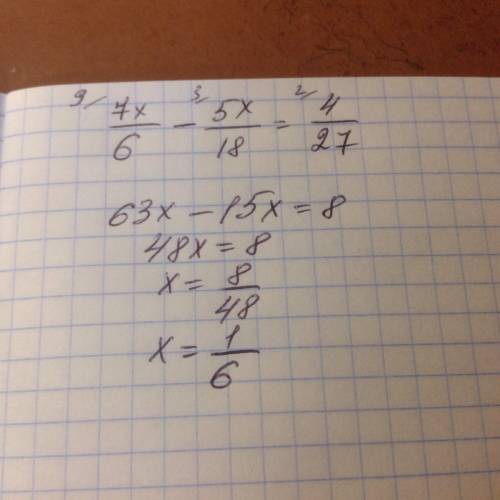 9/ 7x/6 - 3/ 5x/18 = 2/ 4/27
63x - 15x = 8
48x = 8
x = 8/48
x = 1/6